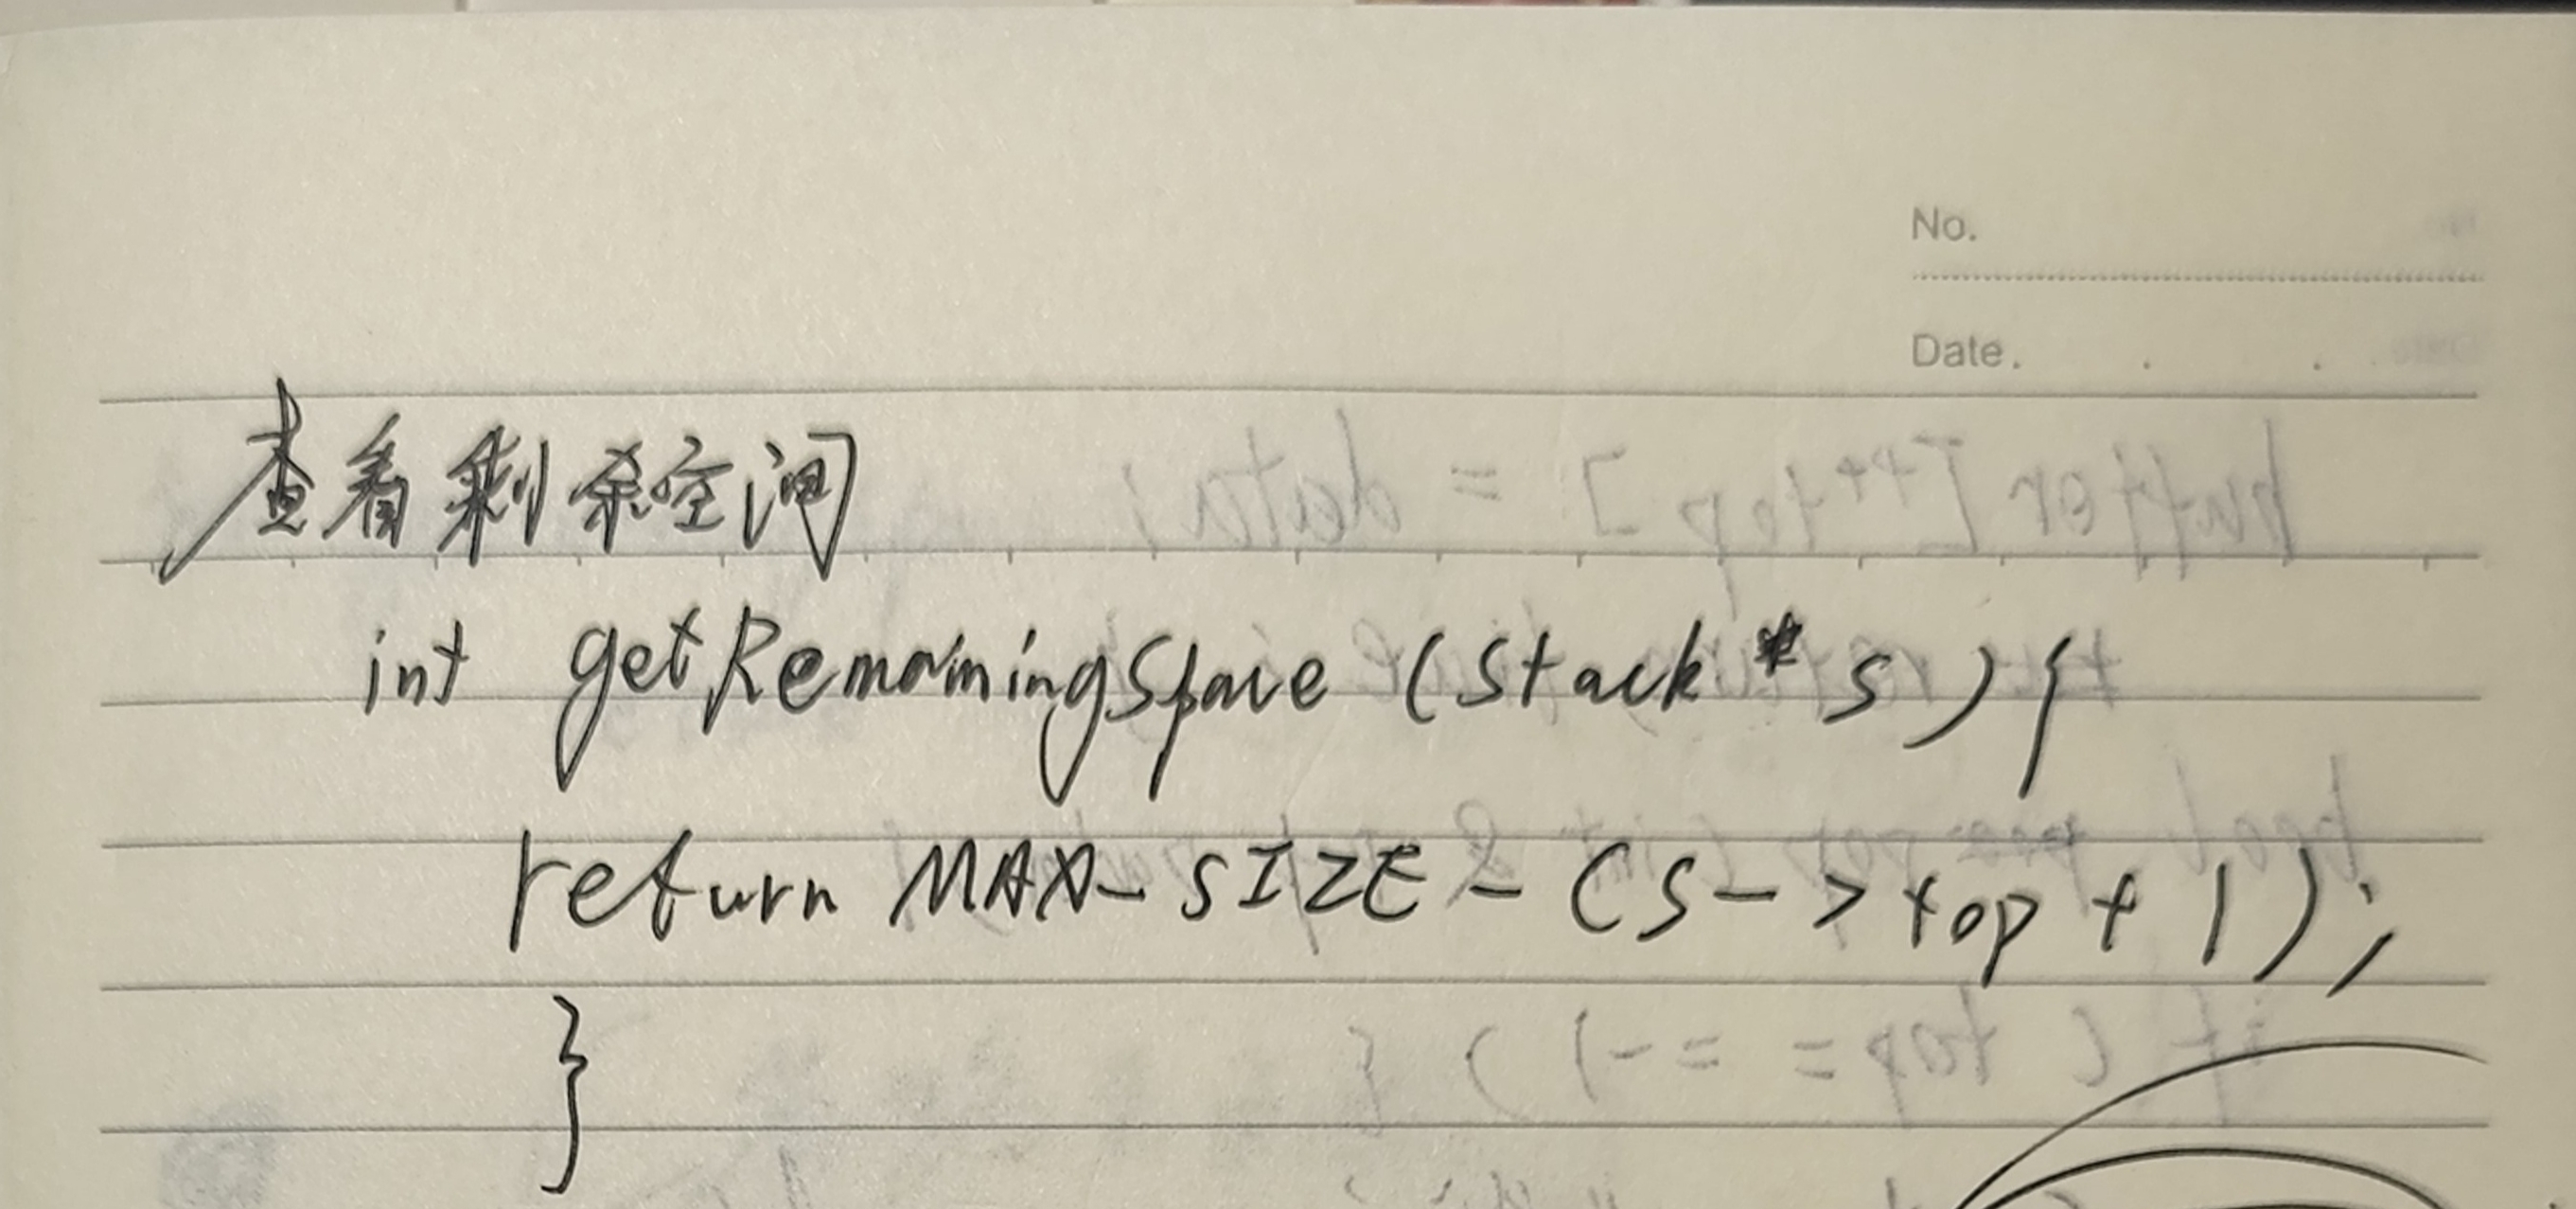 No.
Date.
查看剩余空间
int getRemainingSpace (Stack* s) {
return MAX_SIZE - (S->top + 1);
}